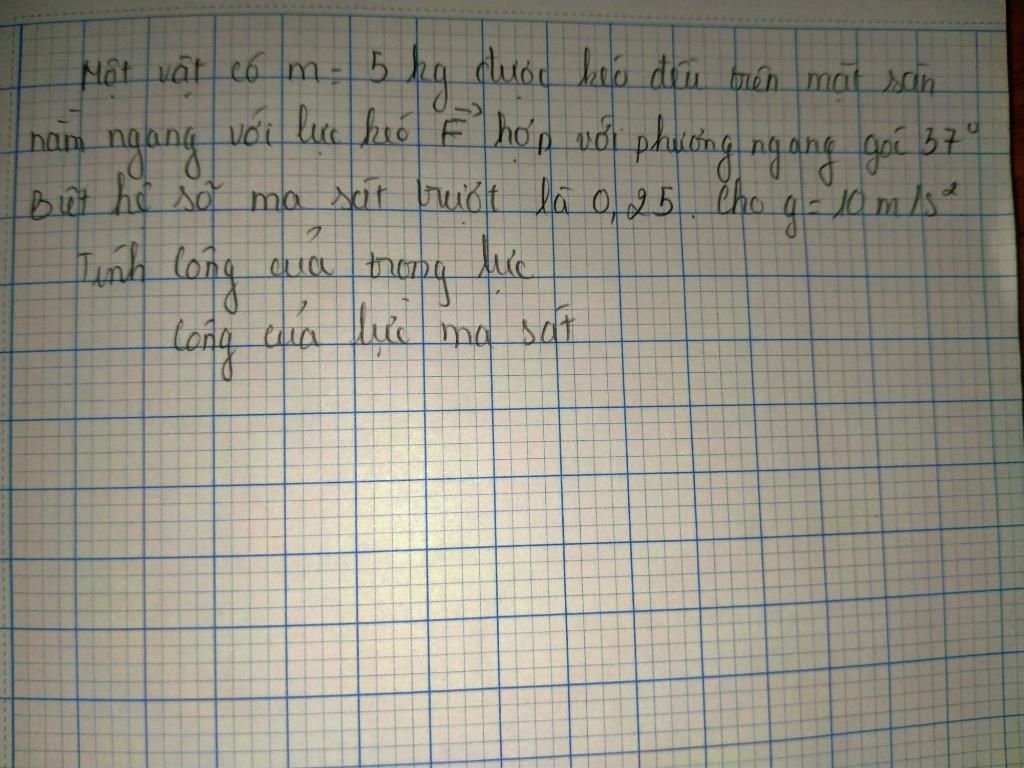 Một vật có m = 5 kg được kéo đều trên mặt sàn
nằm ngang với lực kéo F→ hợp với phương ngang góc 37°
Biết hệ số ma sát trượt là 0,25. Cho g = 10 m/s²
Tính công của trọng lực
công của lực ma sát